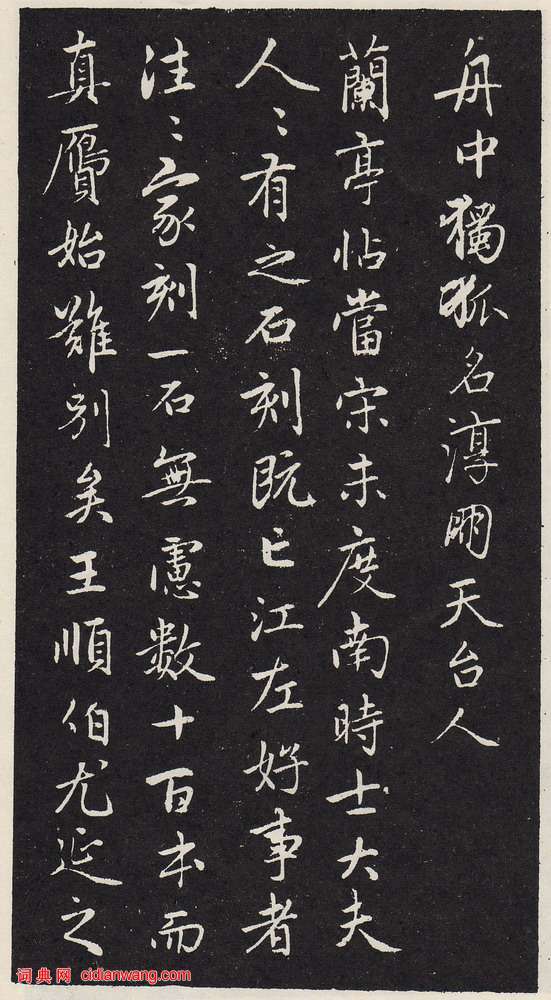 舟中獨孤名淳朋天台人
蘭亭帖當宋未度南時士大夫
人〻有之石刻既亡江左好事者
往〻家刻一石無慮數十百本而
真贗始難別矣王順伯尤延之
词典网 cidianwang.com